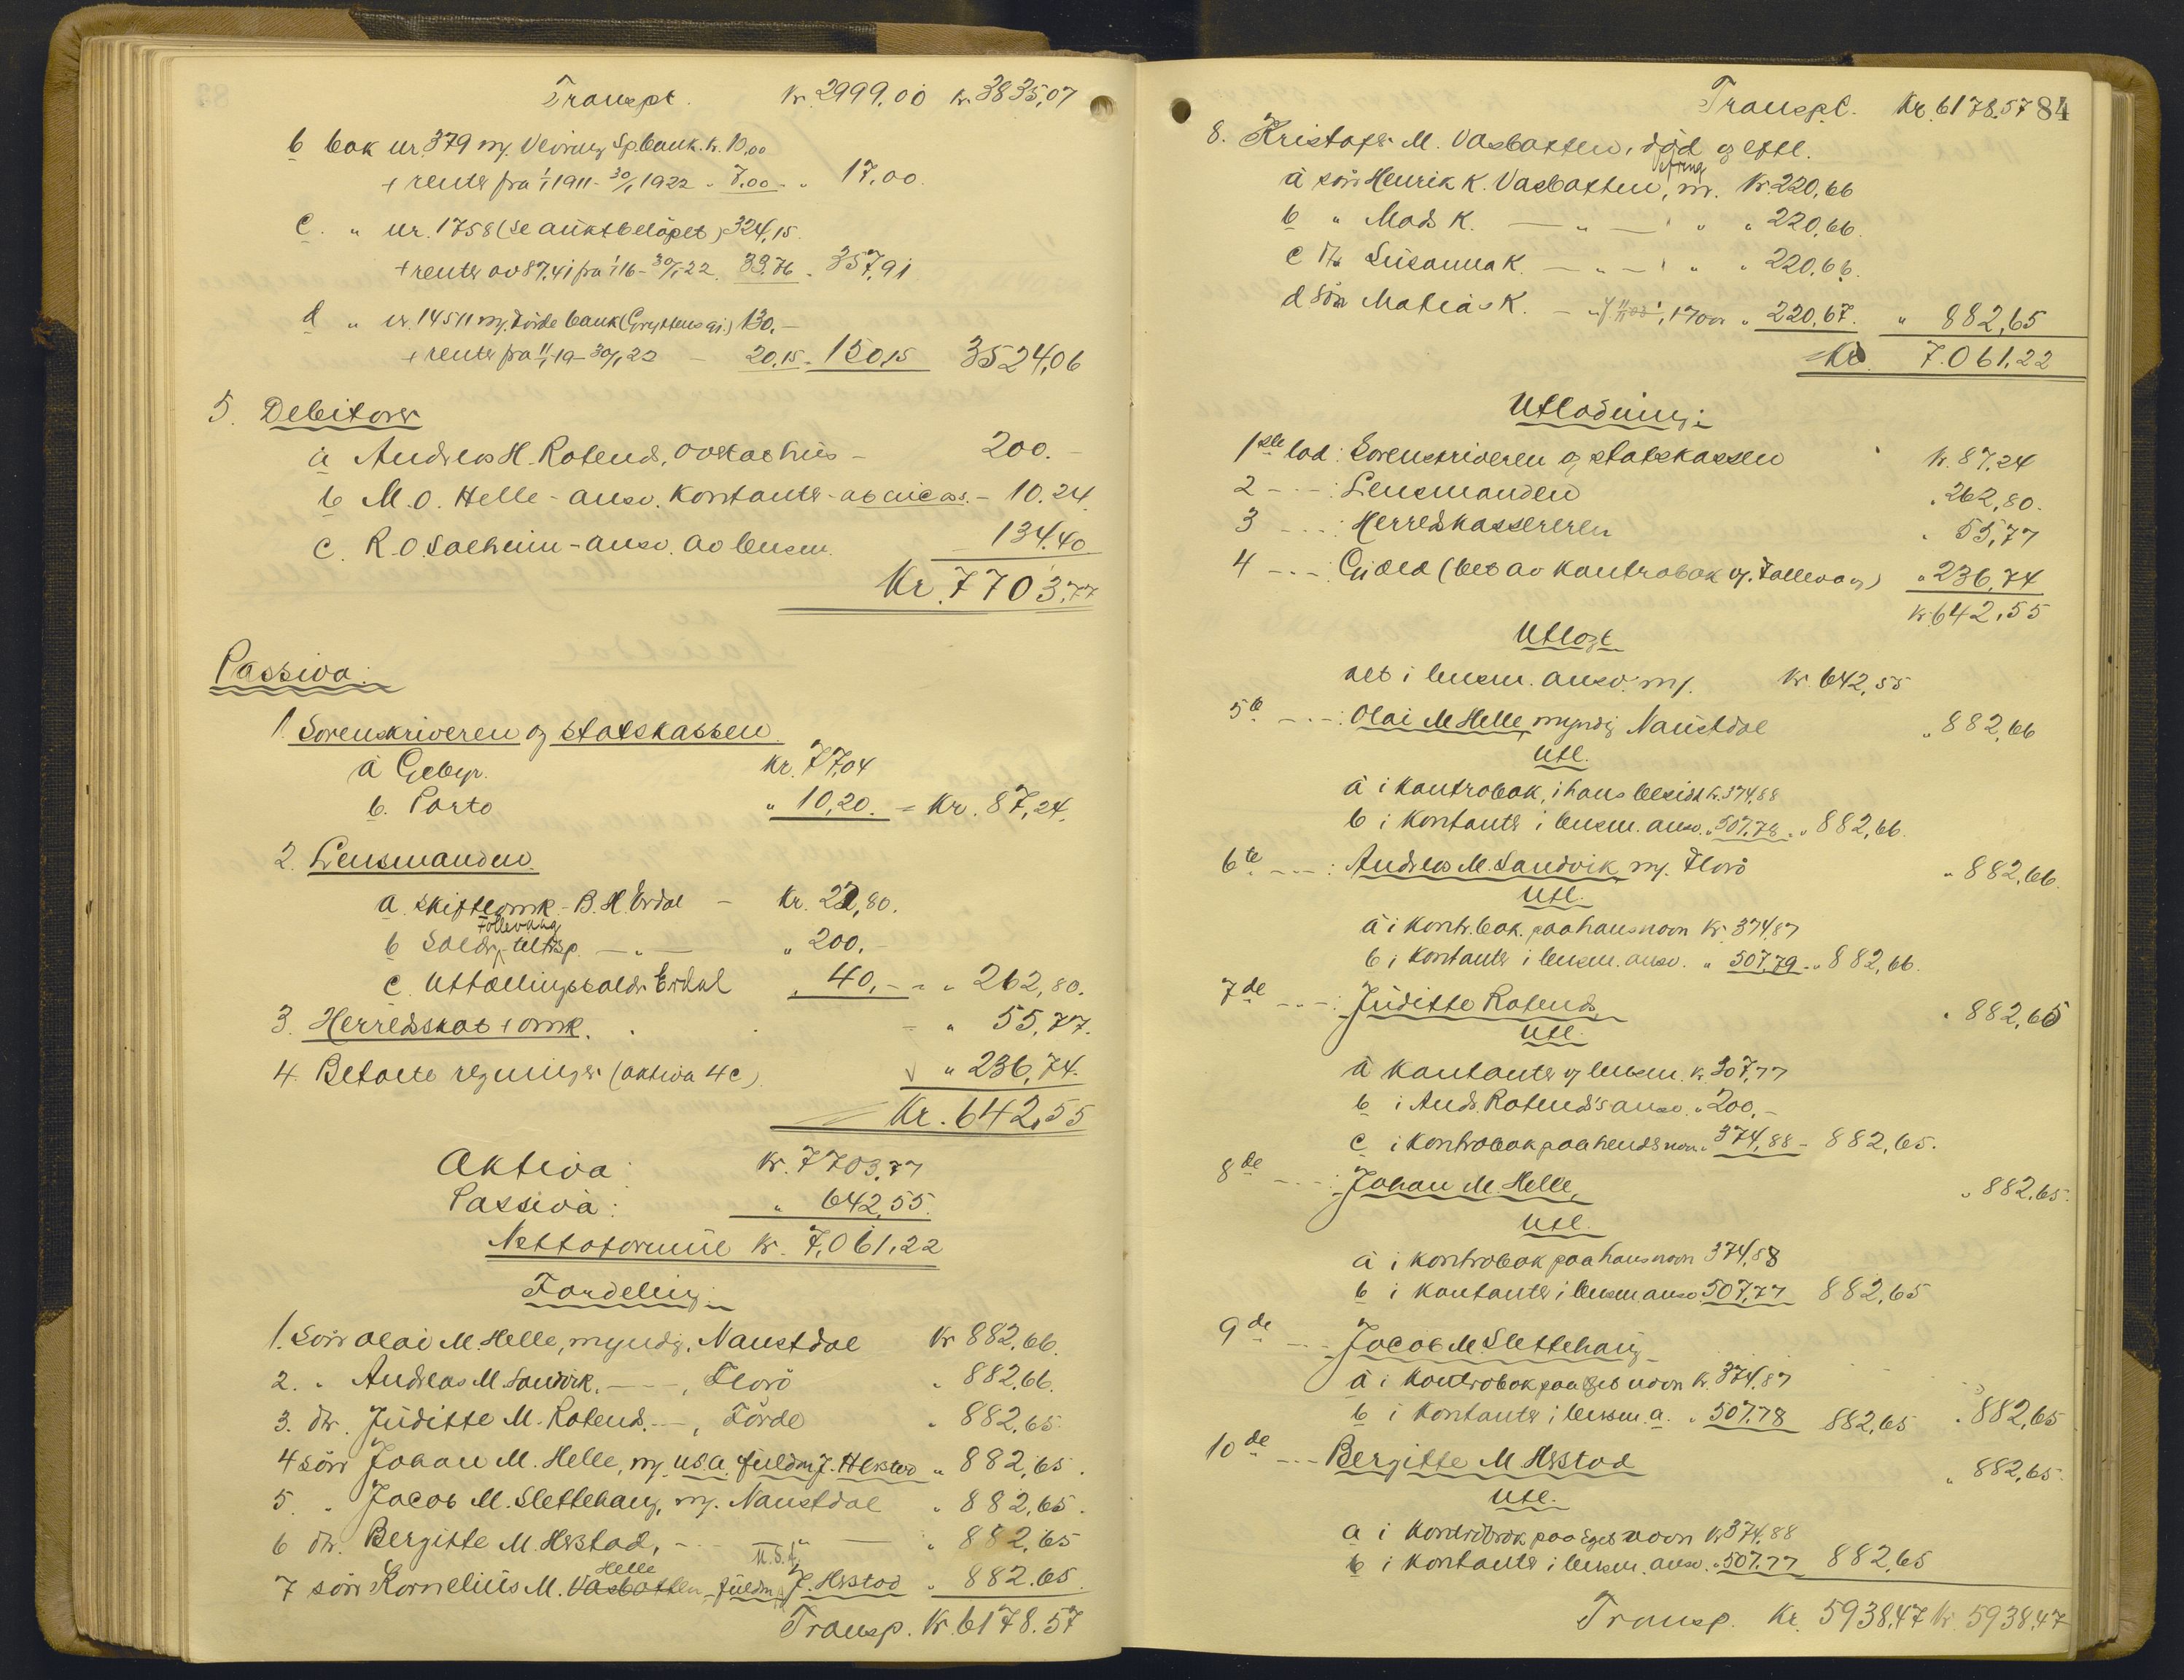 Transpt. Kr. 2999,00 Kr. 3835,07
b bok nr. 379 m/. Vevring Sp.bank. kr. 10,00
+ renter fra 1/1 1911 - 30/1 1922 " 7,00 - " 17,00
c. " nr. 1758 (se auktbeløpet) 324,15
+ renter av 87,41 fra 1/1 16 - 30/1 22 33,76 - 357,91
d " nr. 14511 m/. Förde bank 130,-
+ renter fra 11/1 19 - 30/1 22 - 20,15 - 150,15 3524,06
5. Debitorer
a Andreas H. Rotend, - 200.-
b M. O. Helle - ansv. Kontanter - - 10.24
c. R. O. Solheim - ansv. av lensm. 134.40
Kr. 7703,77
Passiva:
1 Sorenskriveren og statskassen
a Gebyr. Kr. 77,04
b. Porto " 10,20. = Kr. 87,24.
2. Lensmanden.
a. Skifteomk. - B. H. Erdal - Kr. 22,80.
Follevaag
b Salær - " - " 200.-
c. Uttællingssalær Erdal " 40,- - " 262,80.
3. Herredsskat + omk. - " 55,77.
4. Betalte regninger (aktiva 4c) √ " 236,74.
Kr. 642,55
Aktiva: Kr. 7703,77
Passiva: " 642,55.
Nettoformue Kr. 7,061,22
Fordeling:
1. Sön Olai M. Helle, myndig, Naustdal Kr 882,66.
2. " Andreas M. Sandvik, - " -, Florö " 882,66.
3. dtr. Juditte M. Rotend. - " -, Förde " 882,65
4 sön Johan M. Helle, m/. U.S.A. fuldm. J. Hestad " 882,65.
5 " Jacob M. Slettehaug, m/. Naustdal " 882,65.
6 dtr. Bergitte M. Hestad, - " - " 882,65
Helle U.S.A.
7 sön Kornelius M. Vasbotten - fuldm. J. Hestad " 882.65.
Transp. Kr. 6178.57
Transpt. Kr. 6178.57 84
8. Kristofer M. Vasbotten, död og eftl.
Vefring
a sön Henrik K. Vasbotten, m. Kr. 220,66
b " Mads K. - " - " " 220,66.
c dtr Susanna K. - " - " " 220,66.
d sön Matias K. - " - , 17 aar " 220,67. " 882,65
Kr. 7.061,22
Utlodning:
1ste lod: Sorenskriveren og statskassen Kr. 87,24
2 - " - : Lensmanden " 262,80.
3 - " - : Herredskassereren " 55,77
4 - " - : Gjæld (bet av kontrabok v/. Follevaag) " 236,74
Kr. 642,55
Utlagt
alt i lensm. ansv. m/. Kr. 642,55
5te - " - : Olai M Helle, myndig Naustdal " 882,66
Utl.
a i kontrabok, i hans besidd. kr. 374,88
b i kontanter i lensm. ansv. " 507,78 - " 882,66.
6te - " - : Andreas M. Sandvik, m/. Florö " 882,66.
Utl.
a i kontr.bok. paa hans navn Kr. 374,87
b i kontanter i lensm. ansv. " 507,79 - " 882,66.
7de - " - : Juditte Rotend, " 882,65
Utl.
a kontanter v/ lensm. kr. 307,77
b i And. Rotend's ansv. " 200,-
c i kontrabok paa hendes navn " 374,88 - 882,65.
8de - " - : Johan M. Helle, " 882,65.
Utl.
a i kontrabok paa hans navn 374,88
b i kontanter i lensm ansv 507,77 882,65
9de - " - Jacob M. Slettehaug
a i kontrabok paa eget navn Kr. 374,87
b i kontanter i lensm. a. " 507,78 882,65 " 882,65
10de - " - Bergitte M Hestad " 882,65.
Utl.
a i kontrabok paa eget navn Kr 374,88
b i kontanter i lensm. ansv. " 507,77 882,65
Transp. Kr. 5938,47 Kr. 5938,47